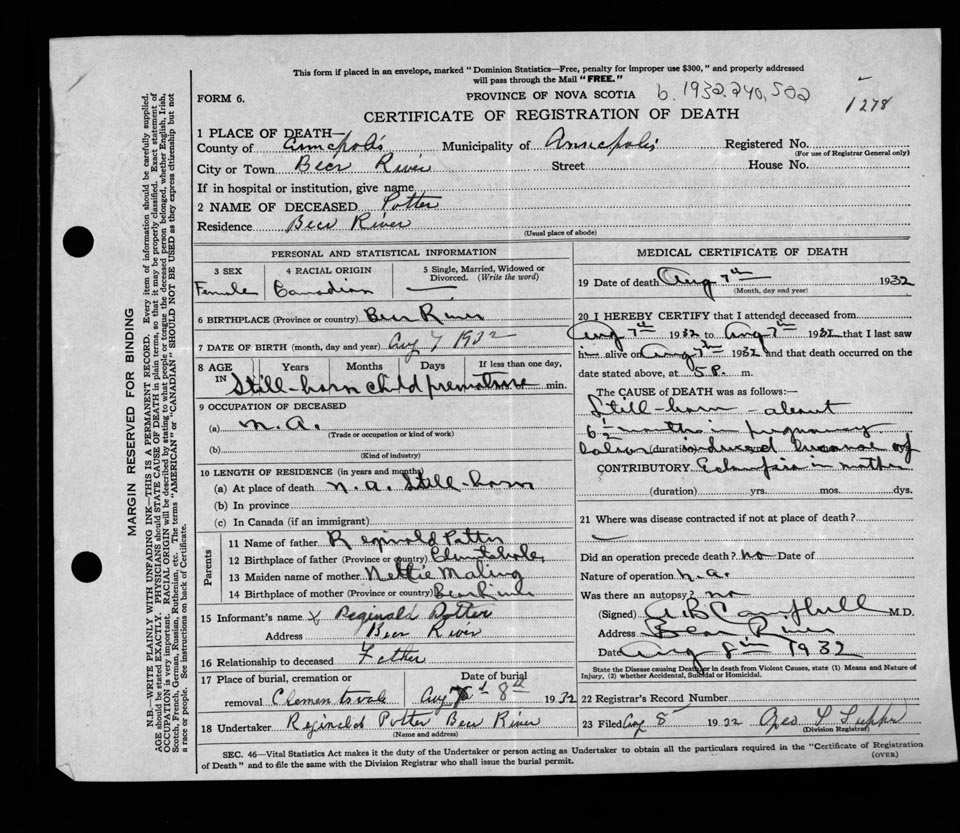 This form if placed in an envelope, marked "Dominion Statistics—Free, penalty for improper use $300," and properly addressed
will pass through the Mail "FREE."
FORM 6.
PROVINCE OF NOVA SCOTIA b. 1932.240,502
1278
CERTIFICATE OF REGISTRATION OF DEATH
1 PLACE OF DEATH—
County of Annapolis Municipality of Annapolis Registered No.
(For use of Registrar General only)
City or Town Bear River Street House No.
If in hospital or institution, give name
2 NAME OF DECEASED Potter
Residence Bear River
(Usual place of abode)
PERSONAL AND STATISTICAL INFORMATION
3 SEX 4 RACIAL ORIGIN 5 Single, Married, Widowed or
Divorced. (Write the word)
Female Canadian —
6 BIRTHPLACE (Province or country) Bear River
7 DATE OF BIRTH (month, day and year) Aug 7 1932
8 AGE IN Years Months Days If less than one day,
Still-born child premature min.
9 OCCUPATION OF DECEASED
(a) n. a.
(Trade or occupation or kind of work)
(b)
(Kind of industry)
10 LENGTH OF RESIDENCE (in years and months)
(a) At place of death n. a. Still-born
(b) In province
(c) In Canada (if an immigrant)
Parents
11 Name of father Reginald Potter
12 Birthplace of father (Province or country)
13 Maiden name of mother Nettie Maling
14 Birthplace of mother (Province or country) Bear River
15 Informant's name X Reginald Potter
Address Bear River
16 Relationship to deceased Father
17 Place of burial, cremation or Date of burial
removal Clementsvale Aug 8th 1932
18 Undertaker Reginald Potter Bear River
(Name and address)
MEDICAL CERTIFICATE OF DEATH
19 Date of death Aug 7th 1932
(Month, day and year)
20 I HEREBY CERTIFY that I attended deceased from
Aug 7th 1932 to Aug 7th 1932 that I last saw
h— alive on Aug 7th 1932 and that death occurred on the
date stated above, at 5 P. m.
The CAUSE OF DEATH was as follows:—
Still-born - about
6 1/2 months in pregnancy
labor (duration) induced because of
CONTRIBUTORY Eclampsia in mother
(duration) yrs. mos. dys.
21 Where was disease contracted if not at place of death?
—
Did an operation precede death? no Date of
Nature of operation n. a.
Was there an autopsy? no
(Signed) A B Campbell M.D.
Address Bear River
Date Aug 8th 1932
State the Disease causing Death, or in death from Violent Causes, state (1) Means and Nature of
Injury, (2) whether Accidental, Suicidal or Homicidal.
22 Registrar's Record Number
23 Filed Aug 8 1932 Geo L
(Division Registrar)
SEC. 46—Vital Statistics Act makes it the duty of the Undertaker or person acting as Undertaker to obtain all the particulars required in the "Certificate of Registration
of Death" and to file the same with the Division Registrar who shall issue the burial permit.
(OVER)
MARGIN RESERVED FOR BINDING
N.B.—WRITE PLAINLY WITH UNFADING INK—THIS IS A PERMANENT RECORD. Every item of information should be carefully supplied.
AGE should be stated EXACTLY. PHYSICIANS should STATE CAUSE OF DEATH in plain terms, so that it may be properly classified. Exact statement of
OCCUPATION is very important. RACIAL ORIGIN will be described by stating to what people or tongue the deceased person belonged, whether English, Irish,
Scotch, French, German, Russian, Ruthenian, etc. The terms "AMERICAN" or "CANADIAN" SHOULD NOT BE USED as they express citizenship but not
a race or people. See instructions on back of Certificate.